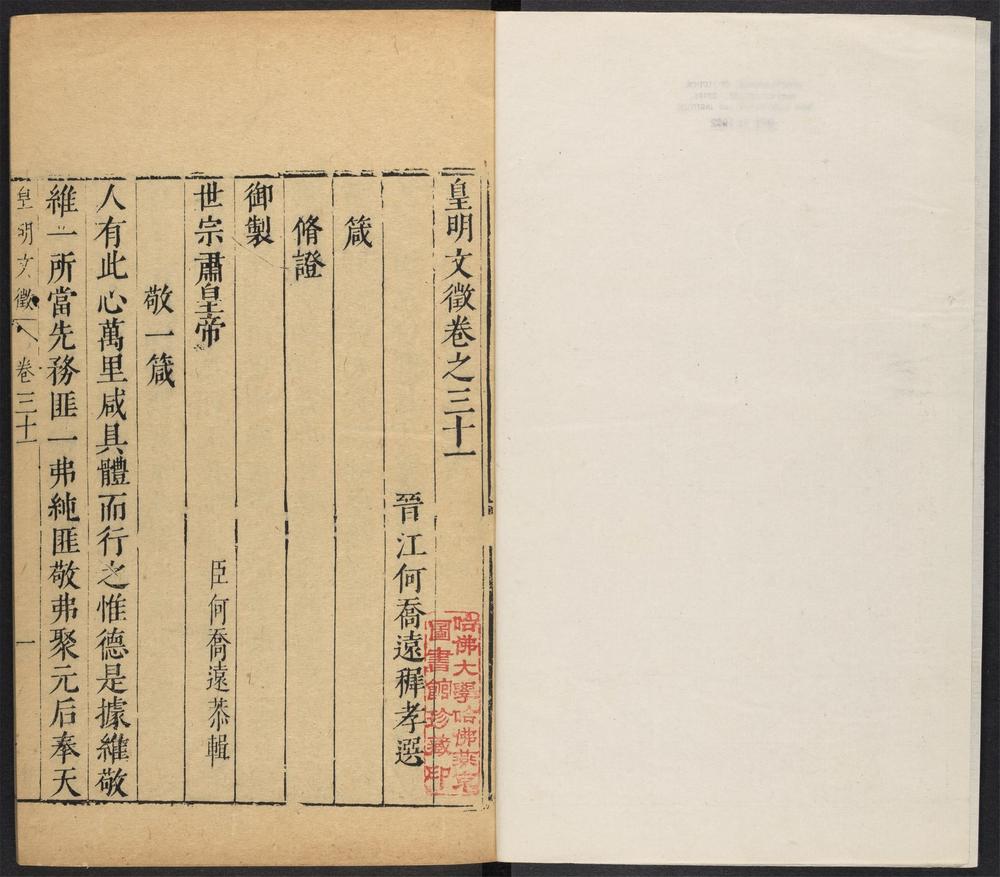 皇明文徵卷之三十一
晉江何喬遠穉孝選
箴
脩證
御製
世宗肅皇帝
臣何喬遠恭輯
敬一箴
人有此心萬里咸具體而行之惟德是據維敬
維一所當先務匪一弗純匪敬弗聚元后奉天
皇明文徵
卷三十一
一
哈佛大學哈佛燕京
圖書館珍藏印